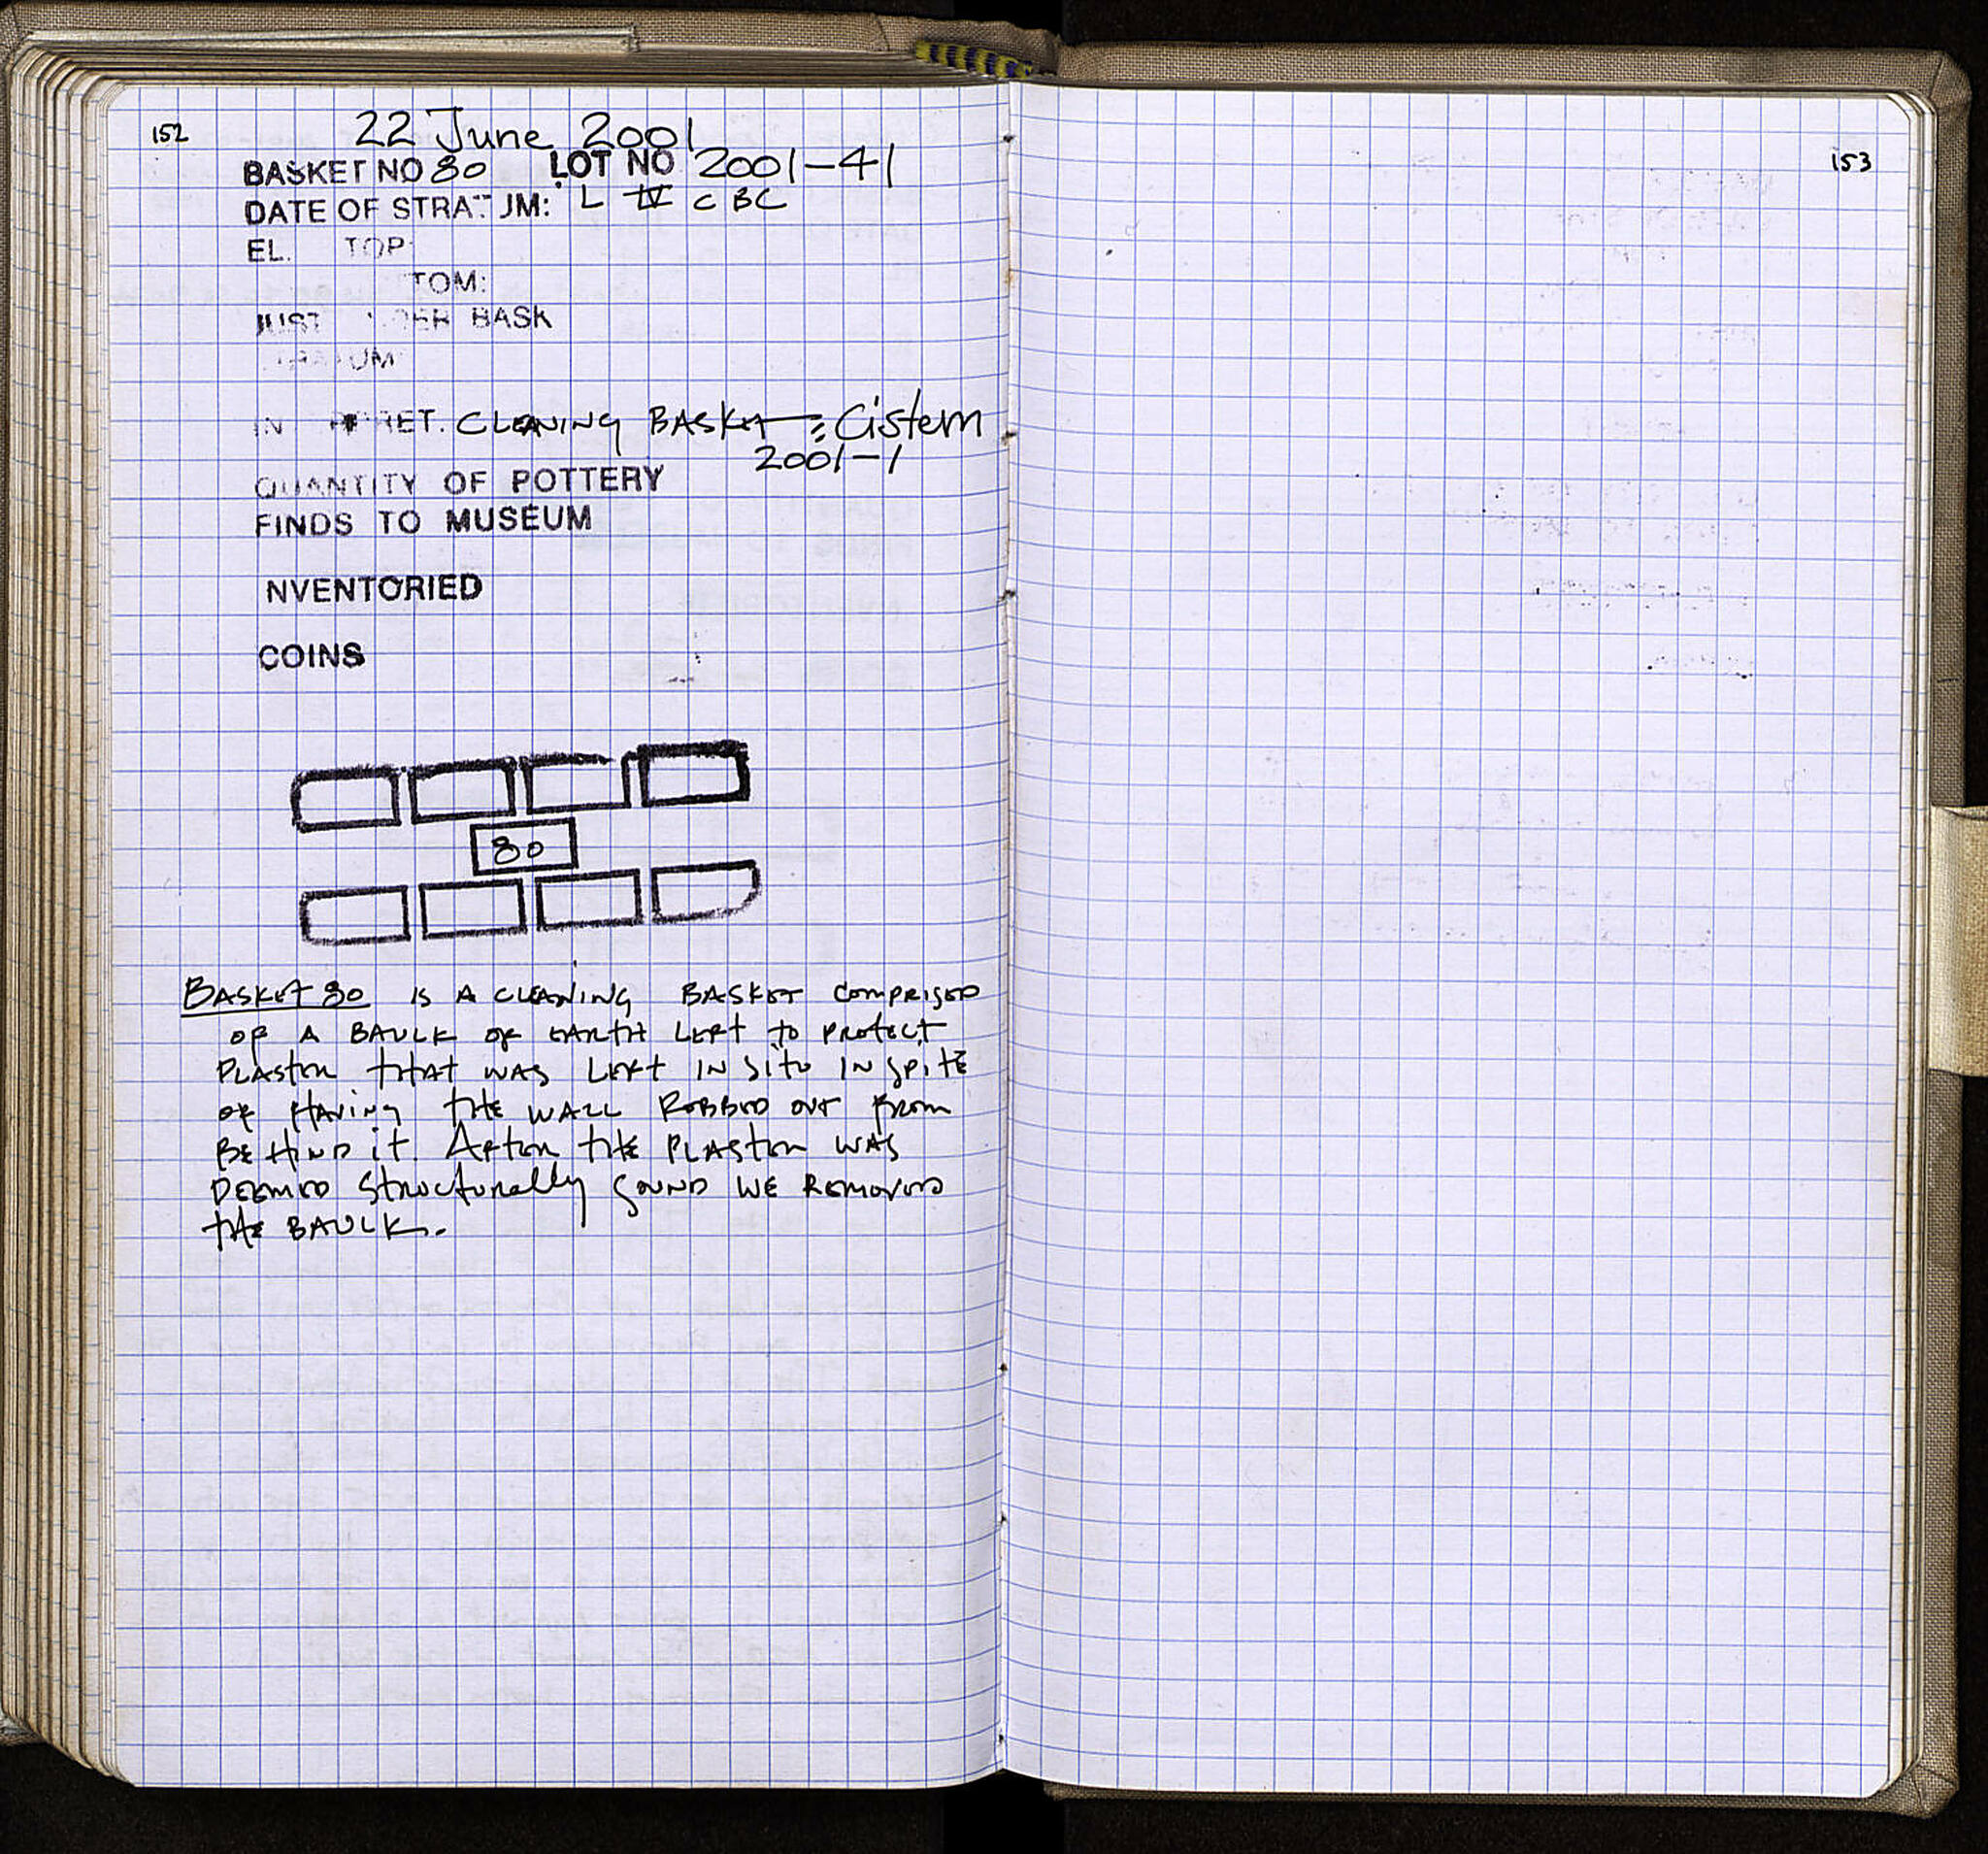 152
22 June 2001
BASKET NO 80 LOT NO 2001-41
DATE OF STRAT UM: L IV C BC
EL. TOP:
TOM:
JUST DER BASK
UM
RET. CLEANING BASKET: Cistern
2001-1
QUANTITY OF POTTERY
FINDS TO MUSEUM
NVENTORIED
COINS
80
BASKET 80 IS A CLEANING BASKET COMPRISED
OF A BAULK OF EARTH LEFT TO PROTECT
PLASTER THAT WAS LEFT IN SITU IN SPITE
OF HAVING THE WALL ROBBED OUT FROM
BEHIND IT. AFTER THE PLASTER WAS
DEEMED STRUCTURALLY SOUND WE REMOVED
THE BAULK.
153